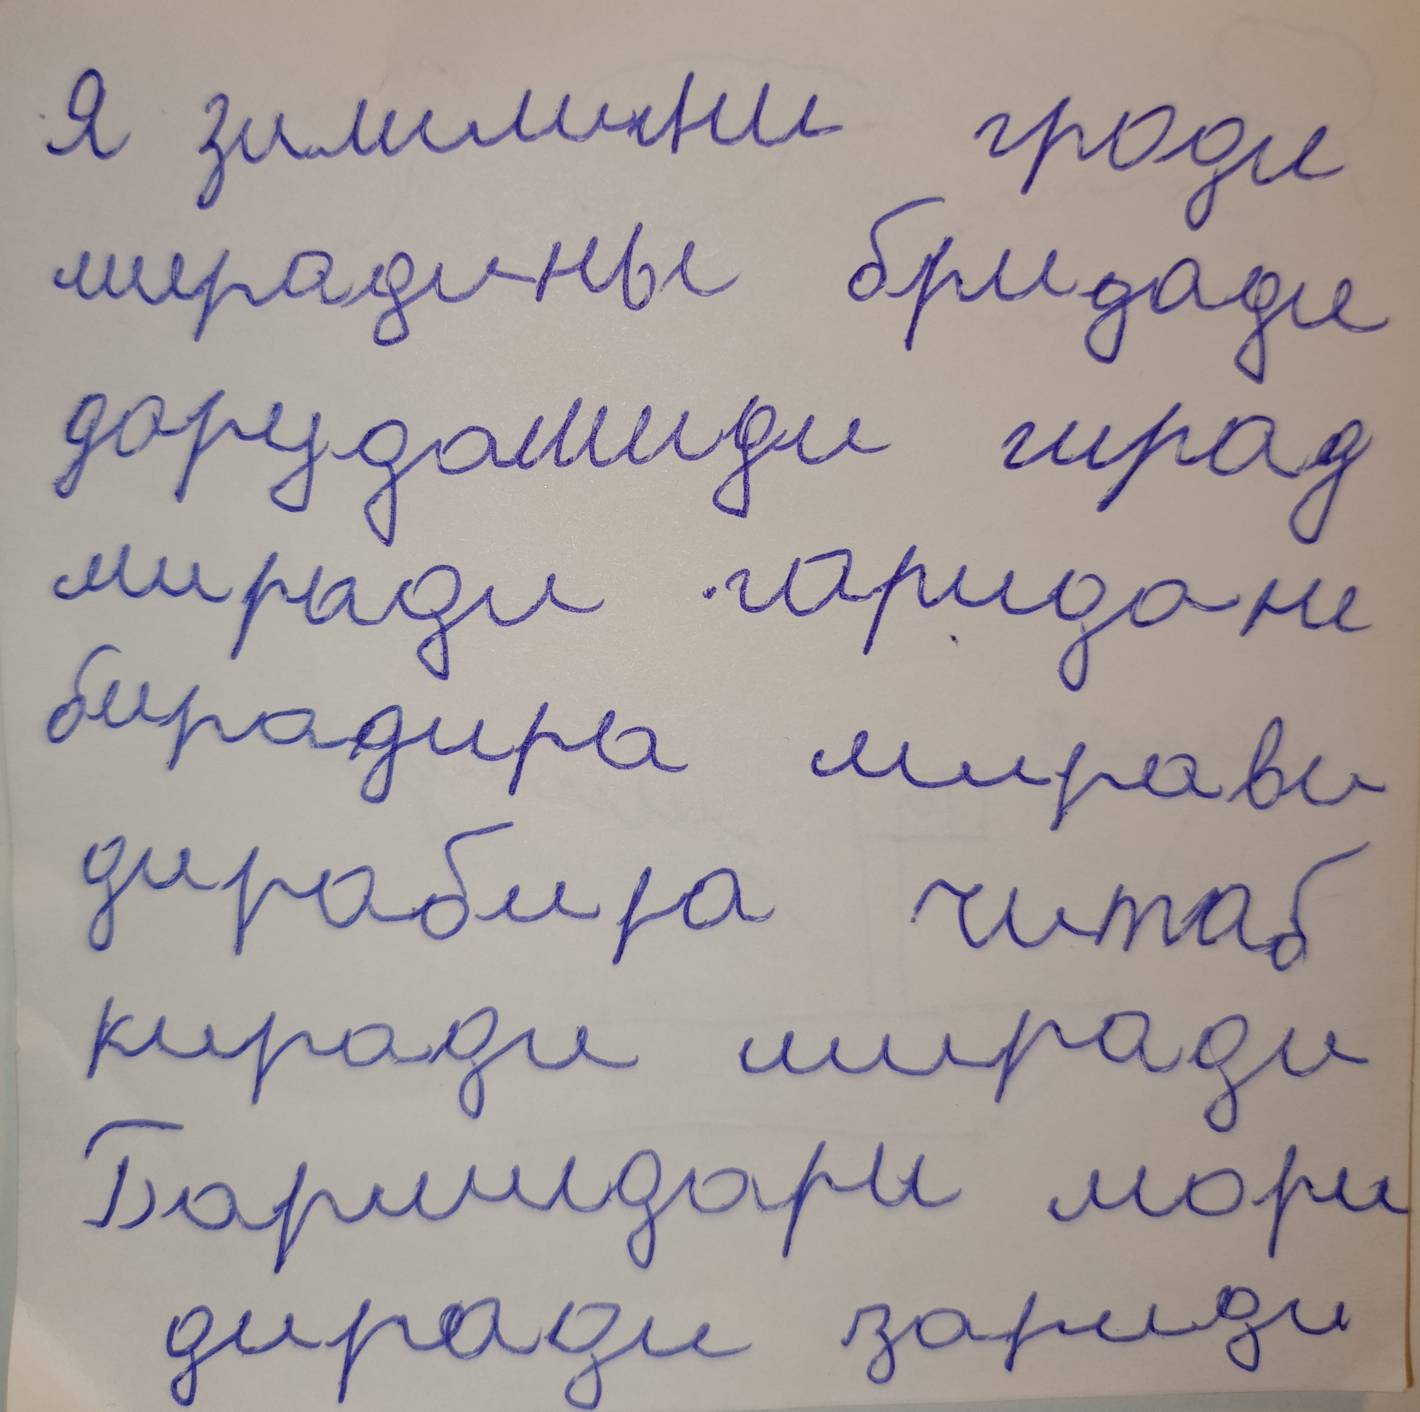 Я зимимни гроди
мирадины бридади
дорудомиди гирад
мирыди гаридоне
бирадира мирави
дирабира читаб
киради миради
Бармидари мори
диради зариди